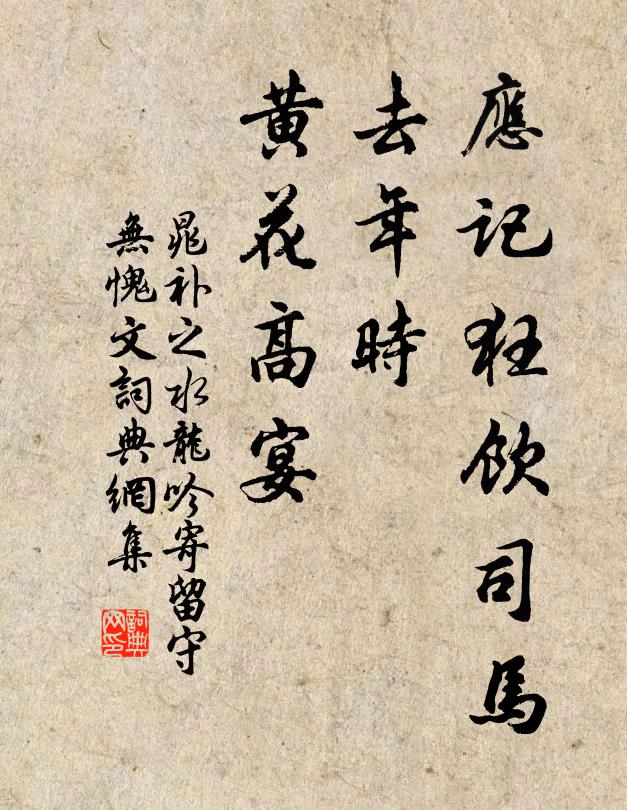 應記狂飲司馬
去年時
黄花高宴
晁补之水龍吟寄留守
無愧文詞典網集
詞典網印